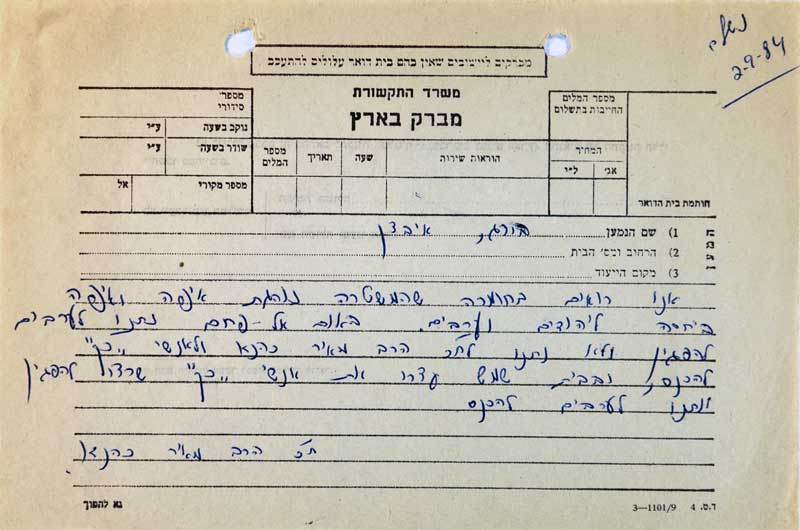 נשלח
2-9-84
מברקים לישובים שאין בהם בית דואר עלולים להתעכב
משרד התקשורת
מברק בארץ
מספר המלים
החייבות בתשלום
המחיר
אג'
ל"י
חותמת בית הדואר
הוראות שירות
שעה
תאריך
מספר
המלים
מספר
סידורי
נוקב בשעה
ע"י
שודר בשעה
ע"י
מספר מקורי
אל
המען
1) שם הנמען בורג, איבצן
2) הרחוב ומס' הבית
3) מקום הייעוד
אנו רואים בחומרה שהמשטרה נוהגת איפה ואיפה
ביחסה ליהודים וערבים. באום אל-פחם נתנו לערבים
להפגין ולא נתנו לח"כ הרב מאיר כהנא ולאנשי "כך"
להכנס, ובבית שמש עצרו את אנשי "כך" שרצו להפגין
ונתנו לערבים להכנס
ח"כ הרב מאיר כהנא
נא להפוך
3—1101/9
ד.ס. 4